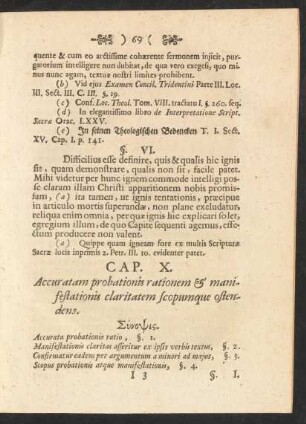 ) 69 (
quente & cum eo arctissime cohærente sermonem injicit, purgatorium
intelligere non dubitat, de qua vero exegesi, quo minus
nunc agam, textus nostri limites prohibent.
(b) Vid ejus Examen Concil. Tridentini Parte III. Loc.
III. Sect. III. C. III. §. 19.
(c) Conf. Loc. Theol. Tom. VIII. tractatu I. §. 260. seq.
(d) In elegantissimo libro de Interpretatione Script.
Sacræ Orac. LXXV.
(e) In seinen Theologischen Bedencken T. I. Sect.
XV. Cap. I. p. 141.
§. VI.
Difficilius esse definire, quis & qualis hic ignis
sit, quam demonstrare, qualis non sit, facile patet.
Mihi videtur per hunc ignem commode intelligi posse
claram illam Christi apparitionem nobis promissum,
(a) ita tamen, ut ignis tentationis, præcipue
in articulo mortis superandæ, non plane excludatur,
reliqua enim omnia, per quæ ignis hic explicari solet,
egregium illum, de quo Capite sequenti agemus, effectum
producere non valent.
(a) Quippe quam igneam fore ex multis Scripturæ
Sacræ locis inprimis 2. Petr. III. 10. evidenter patet.
CAP. X.
Accuratam probationis rationem & manifestationis
claritatem scopumque ostendens.
Σύνοψις.
Accurata probationis ratio, §. 1.
Manifestationis claritas asseritur ex ipsis verbis textus, §. 2.
Confirmatur eadem per argumentum a minori ad majus, §. 3.
Scopus probationis atque manifestationis, §. 4.
I 3 §. I.